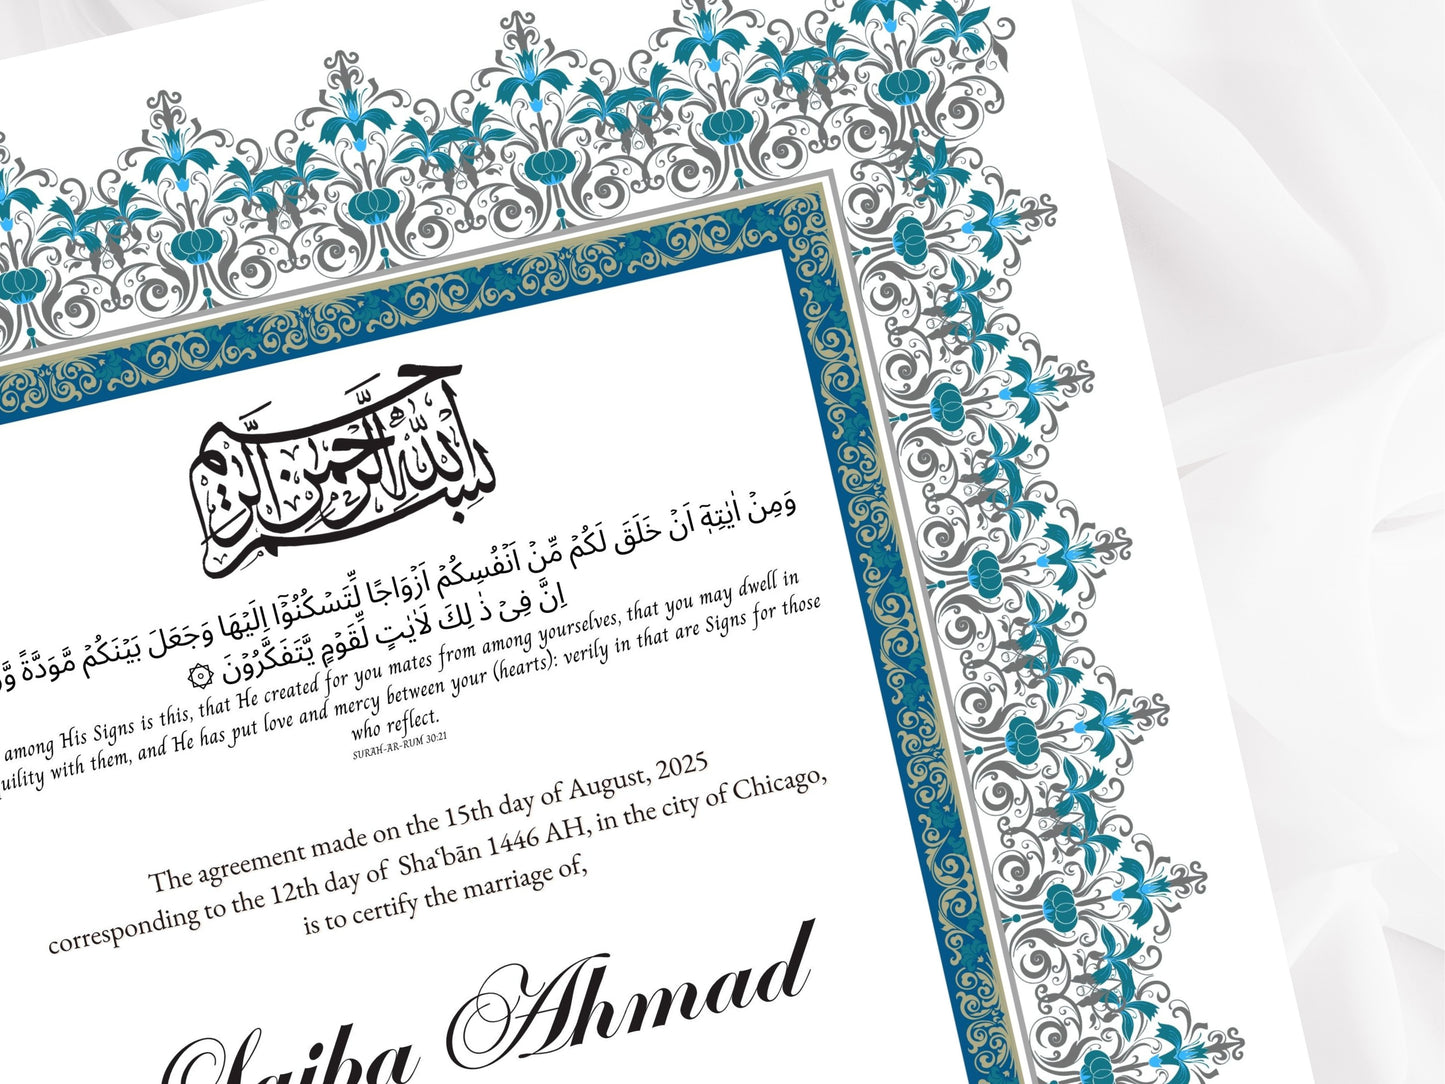 بسم الله الرحمن الرحيم
وَمِنْ اٰيٰتِهٖٓ اَنْ خَلَقَ لَكُمْ مِّنْ اَنْفُسِكُمْ اَزْوَاجًا لِّتَسْكُنُوْٓا اِلَيْهَا وَجَعَلَ بَيْنَكُمْ مَّوَدَّةً
اِنَّ فِيْ ذٰ لِكَ لَاٰيٰتٍ لِّقَوْمٍ يَّتَفَكَّرُوْنَ ۞
among His Signs is this, that He created for you mates from among yourselves, that you may dwell in
with them, and He has put love and mercy between your (hearts): verily in that are Signs for those
who reflect.
SURAH-AR-RUM 30:21
The agreement made on the 15th day of August, 2025
corresponding to the 12th day of Shaʿbān 1446 AH, in the city of Chicago,
is to certify the marriage of,
Ahmad